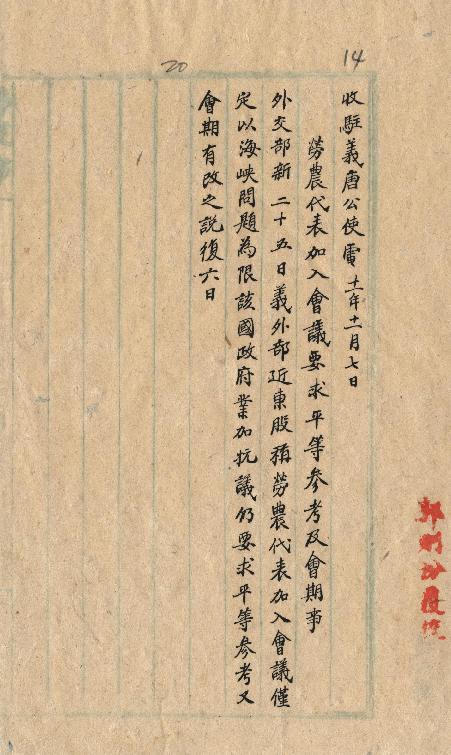 14
20
收駐義唐公使電 十一年十一月七日
勞農代表加入會議要求平等參考及會期事
外交部新二十五日義外部近東股稱勞農代表加入會議僅
定以海峽問題為限該國政府業加抗議仍要求平等參考又
會期有改之說復六日